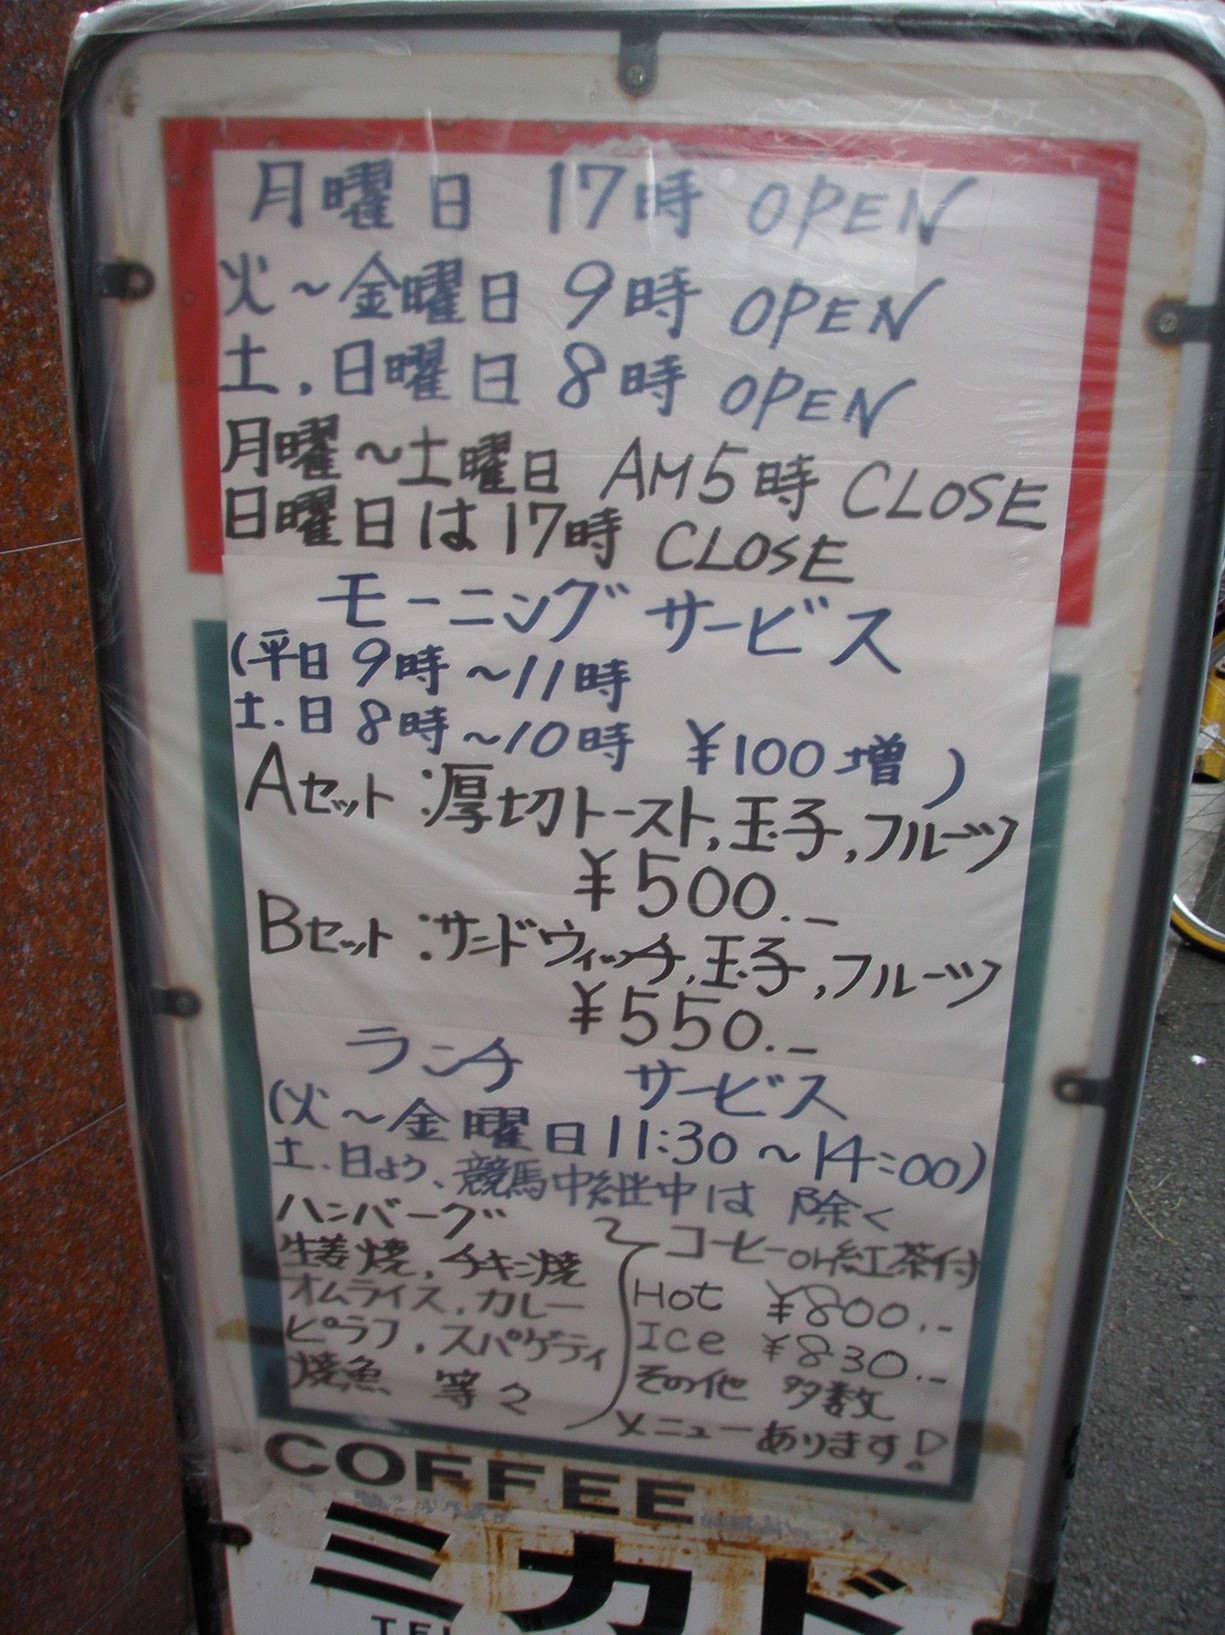 月曜日 17時 OPEN
火～金曜日 9時 OPEN
土,日曜日 8時 OPEN
月曜～土曜日 AM5時 CLOSE
日曜日は17時 CLOSE
モーニング サービス
(平日 9時～11時
土.日 8時～10時 ¥100増)
Aセット:厚切トースト,玉子,フルーツ
¥500.-
Bセット:サンドウィッチ,玉子,フルーツ
¥550.-
ランチ サービス
(火～金曜日11:30～14:00)
土.日より、競馬中継中は除く
ハンバーグ
生姜焼,チキン焼
オムライス,カレー
ピラフ,スパゲティ
焼魚 等々
コーヒーor紅茶付
Hot ¥800.-
Ice ¥830.-
その他 多数
メニューあります!
COFFEE
ミカド
TEL